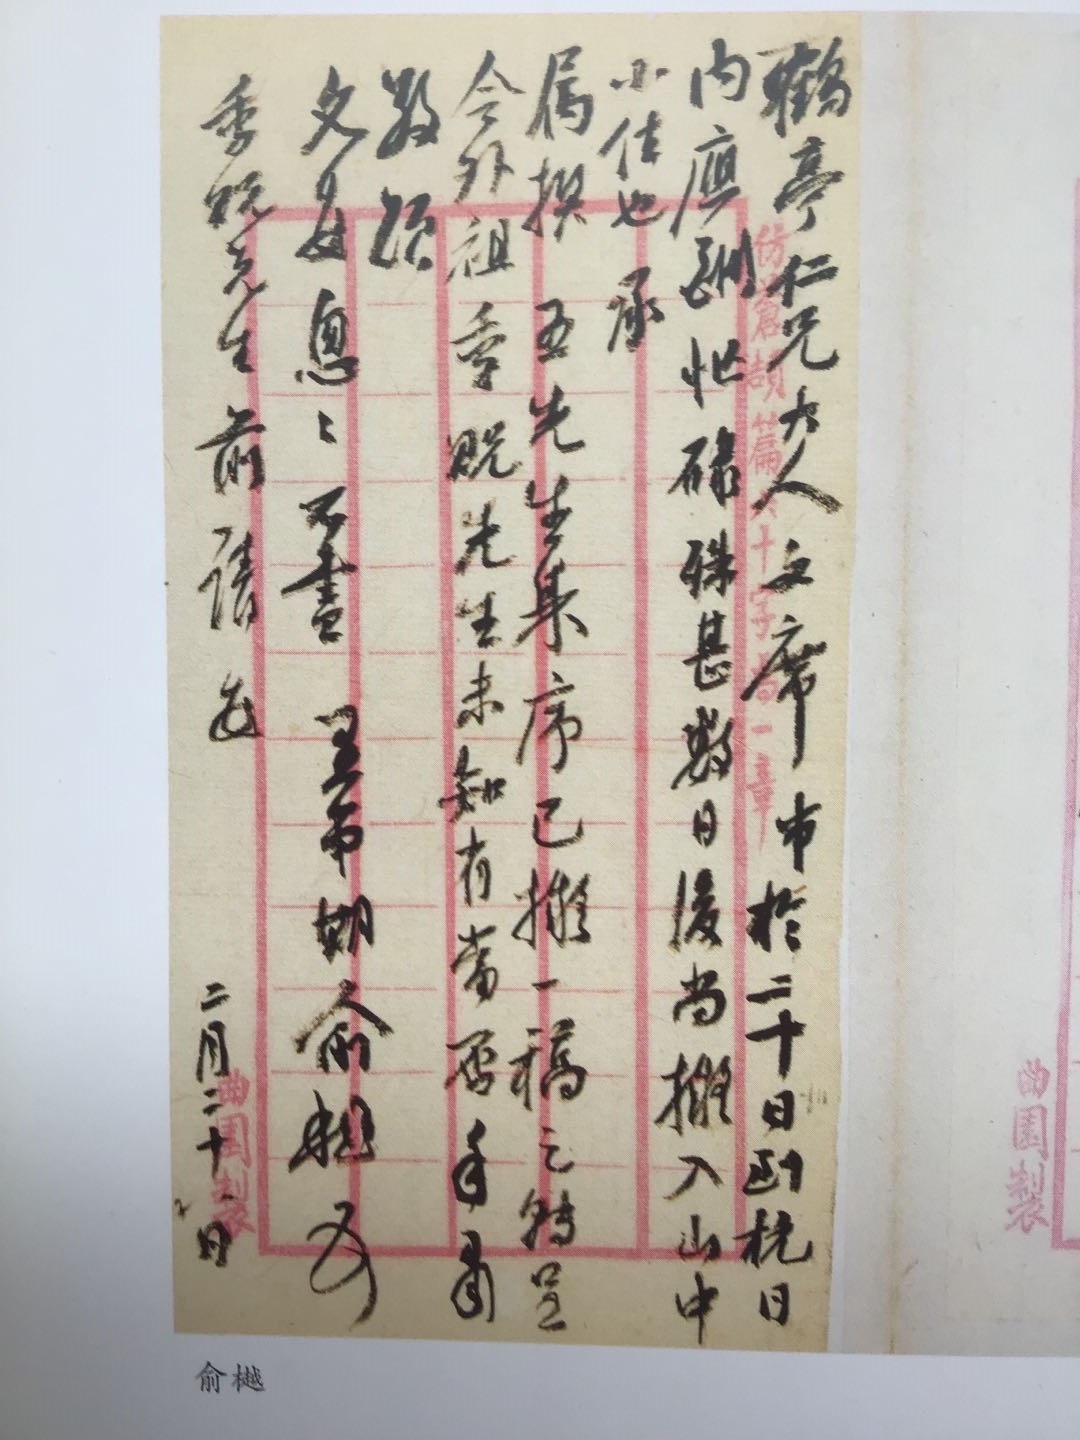 鶴亭仁兄大人文席弟於二十日到杭日
内應酬忙碌殊甚數日後尚擬入山中
小住也承
属撰五先生集序已擬一稿乞转呈
令外祖季贶先生未知有當否手肅
敬頌
文安匆匆不盡 年 期俞樾頓
季貺先生前請安
二月二十八日
仿蒼頡篇六十字為一章
曲園製
曲園製
俞樾